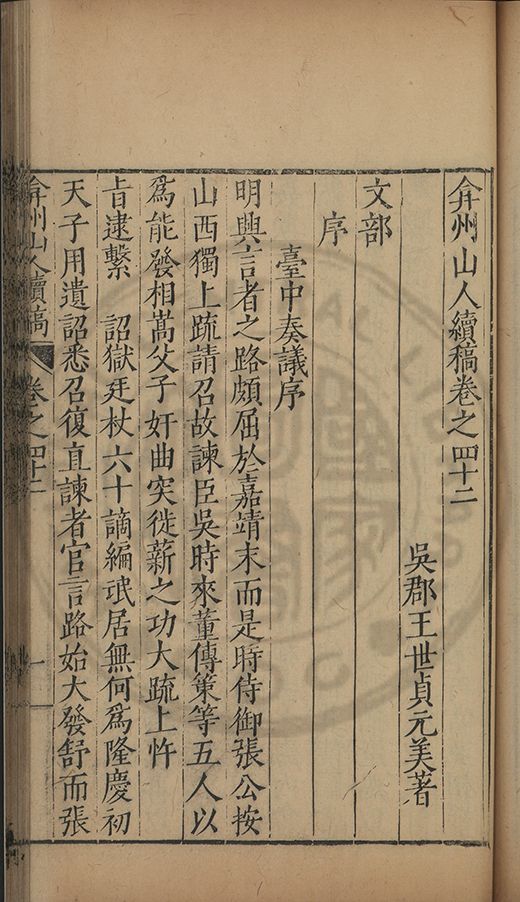 弇州山人續稿卷之四十二
吳郡王世貞元美著
文部
序
臺中奏議序
明興言者之路頗屈於嘉靖末而是時侍御張公按
山西獨上疏請召故諫臣吳時來董傳策等五人以
爲能發相嵩父子奸曲突徙薪之功大疏上忤
旨逮繫 詔獄廷杖六十謫編氓居無何爲隆慶初
天子用遺詔悉召復直諫者官言路始大發舒而張
弇州山人續稿 卷之四十二 一